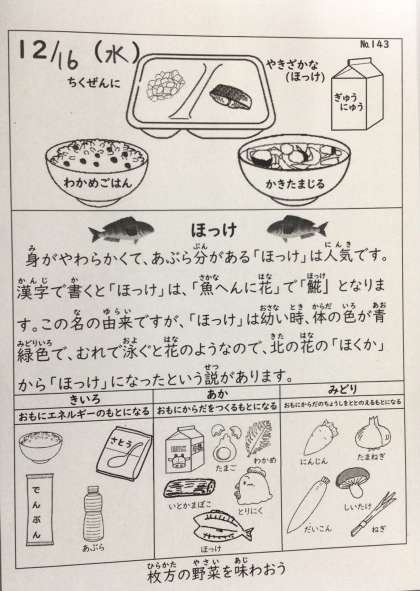 12/16(水)
No.143
ちくぜんに
やきざかな
(ほっけ)
ぎゅう
にゅう
わかめごはん
かきたまじる
ほっけ
身がやわらかくて、あぶら分がある「ほっけ」は人気です。
漢字で書くと「ほっけ」は、「魚へんに花」で「𩸽」となりま
す。この名の由来ですが、「ほっけ」は幼い時、体の色が青
緑色で、むれで泳ぐと花のようなので、北の花の「ほくか」
から「ほっけ」になったという説があります。
きいろ
おもにエネルギーのもとになる
さとう
でんぷん
あぶら
あか
おもにからだをつくるもとになる
たまご
わかめ
いとかまぼこ
とりにく
ほっけ
みどり
おもにからだのちょうしをととのえるもとになる
にんじん
たまねぎ
しいたけ
だいこん
ねぎ
枚方の野菜を味わおう